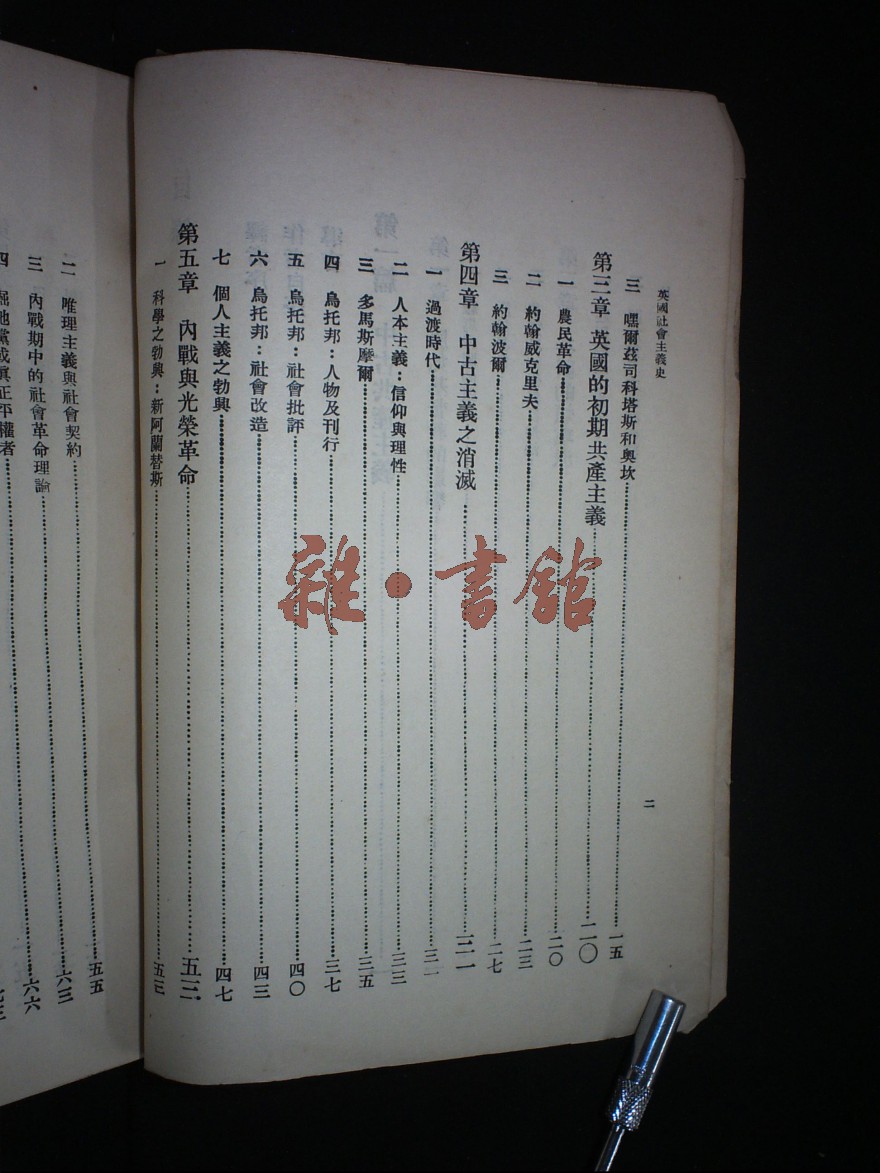 英國社會主義史
二
三 嘿爾茲司科塔斯和奧坎 一五
第三章 英國的初期共產主義 二〇
一 農民革命 二〇
二 約翰威克里夫 二三
三 約翰波爾 二七
第四章 中古主義之消滅 三一
一 過渡時代 三一
二 人本主義：信仰與理性 三三
三 多馬斯摩爾 三五
四 烏托邦：人物及刊行 三七
五 烏托邦：社會批評 四〇
六 烏托邦：社會改造 四三
七 個人主義之勃興 四七
第五章 內戰與光榮革命 五三
一 科學之勃興：新阿蘭替斯 五三
二 唯理主義與社會契約 五五
三 內戰期中的社會革命理論 六三
四 掘地黨或真正平權者 六六
雜·書館